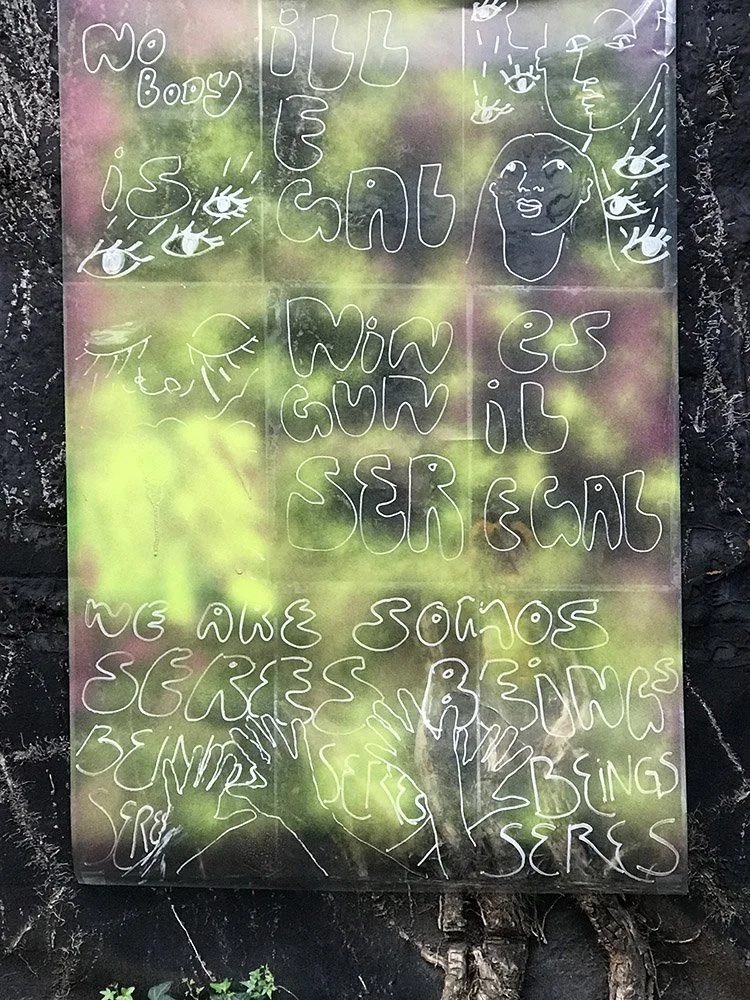 NO
BODY
iS
iLL
E
GAL
NiN
GUN
SER
eS
iL
EGAL
WE ARE SOMOS
SERES BEiNGS
BEiNGS SERES BEiNGS
SERES SERES